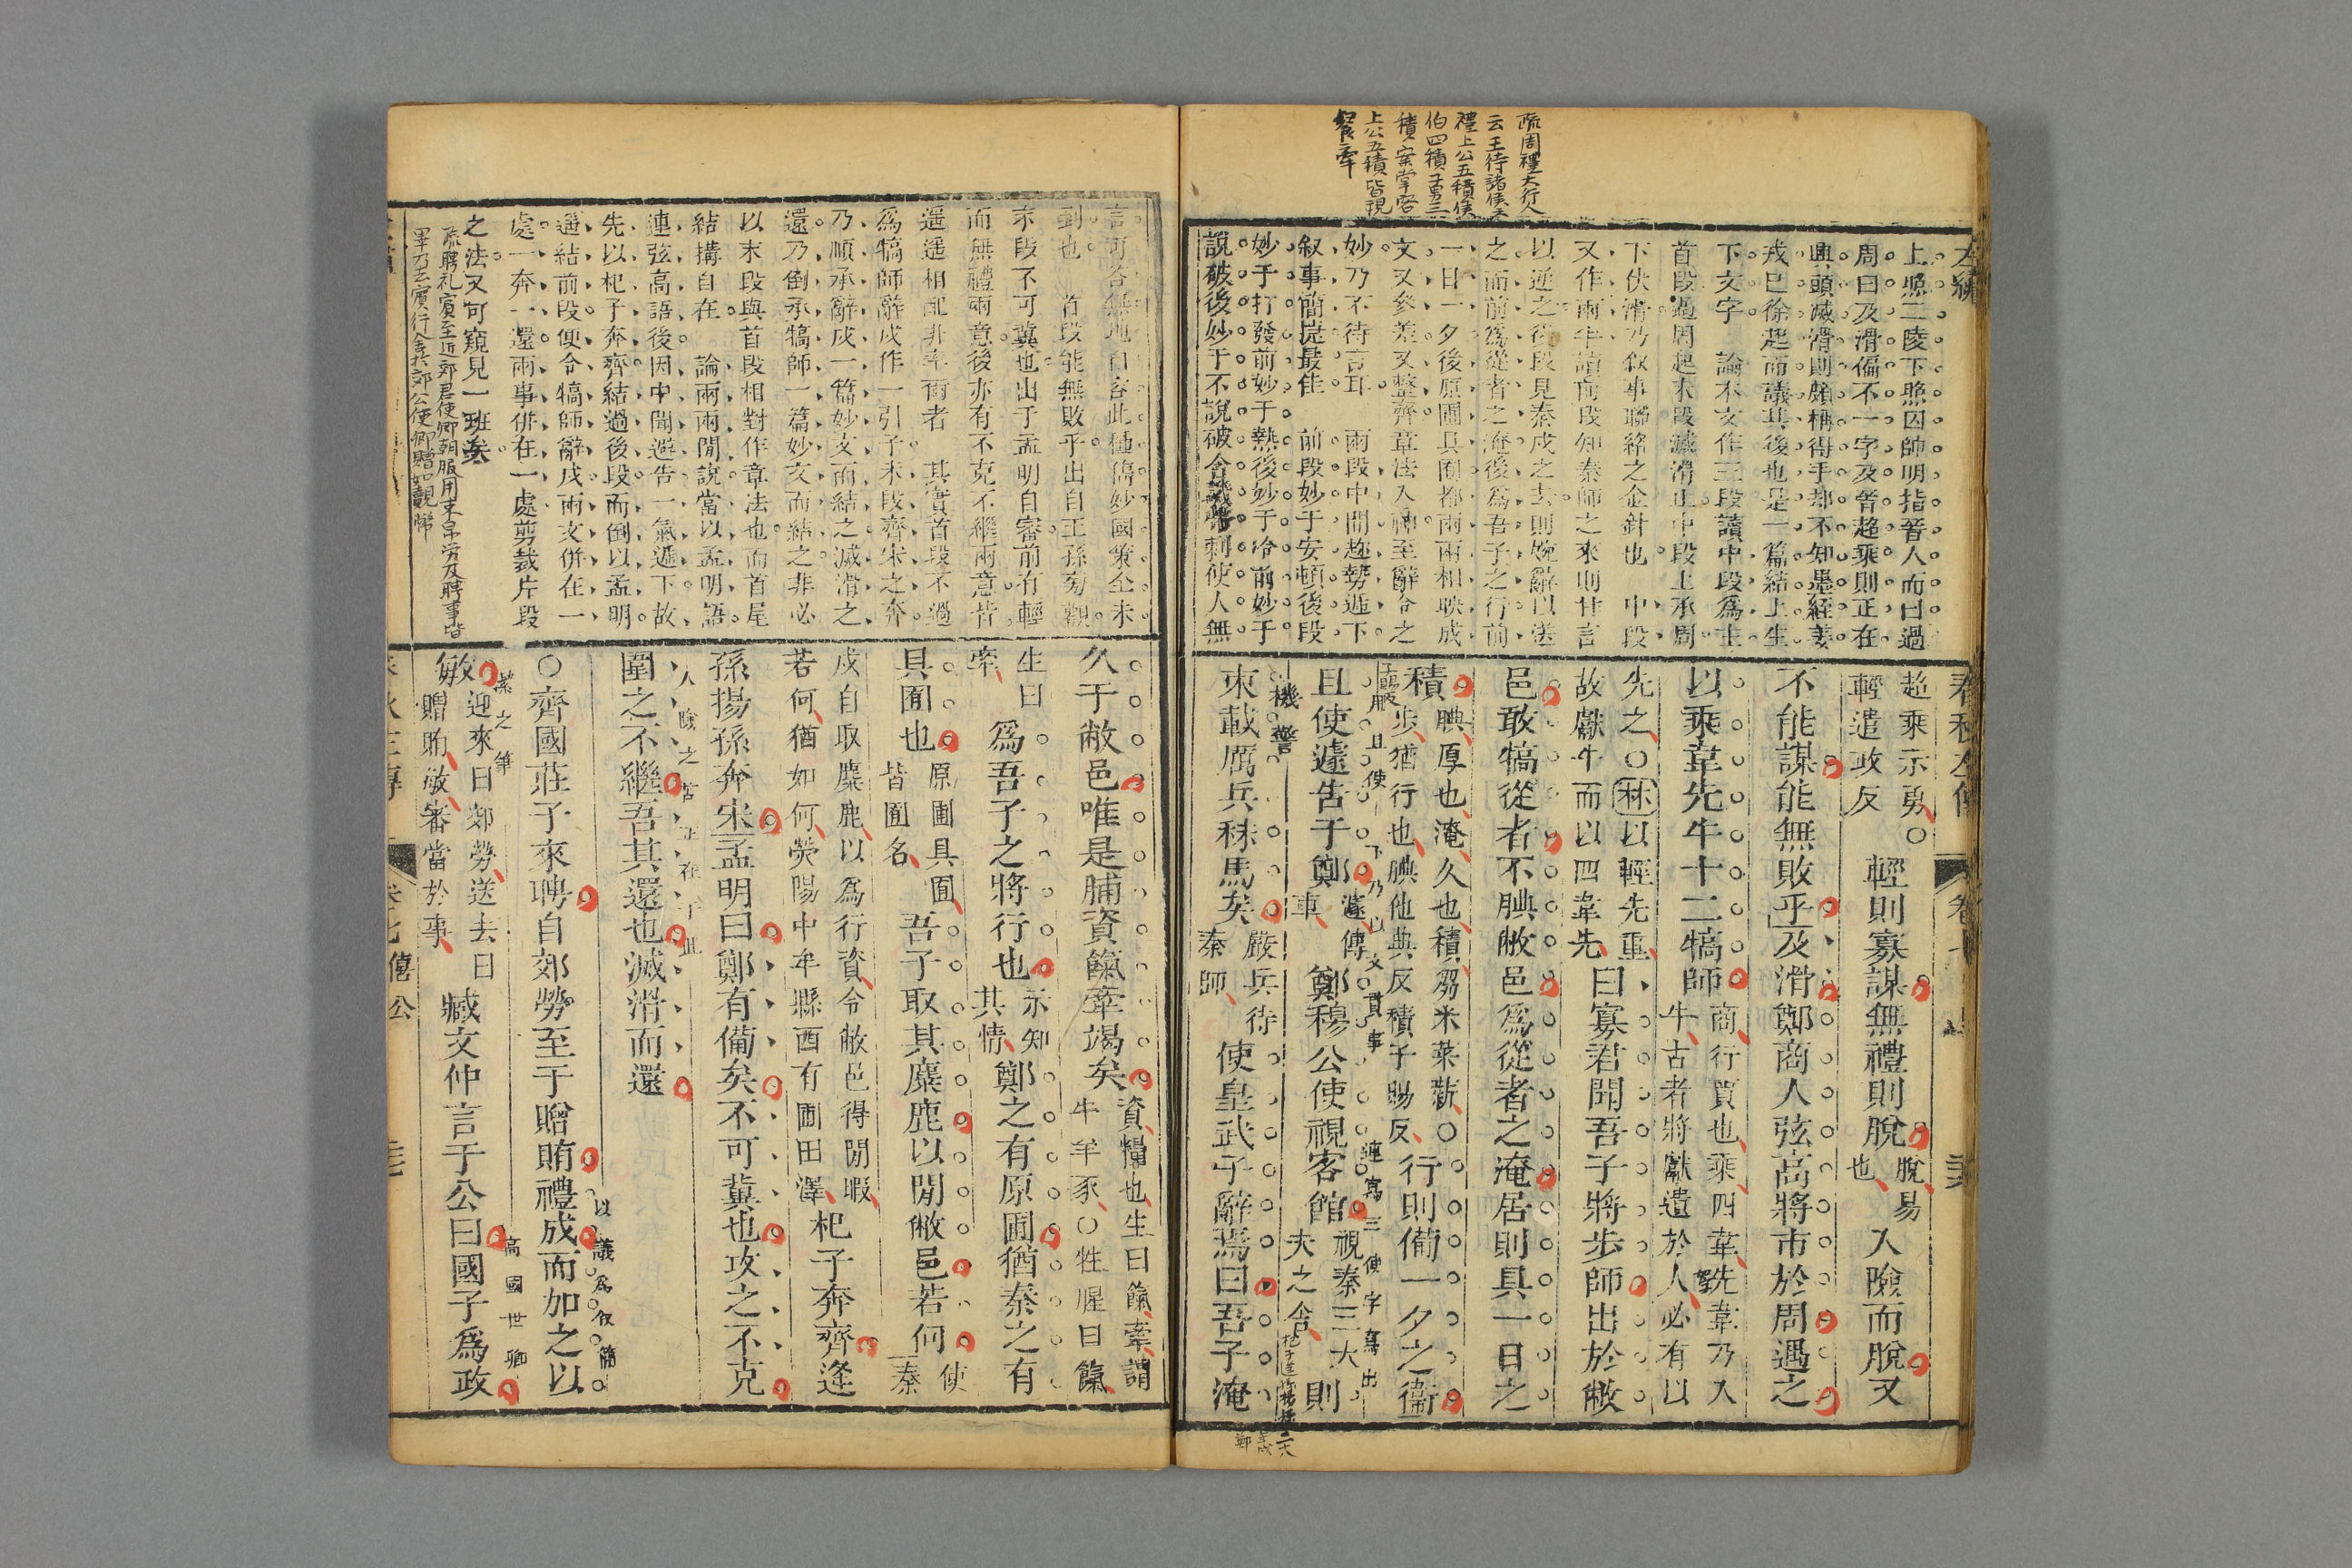 疏周禮大行人
云王待諸侯之
禮上公五積侯
伯四積子男三
積案掌客
上公五積皆視
飱牽
左繡
上照二陵下照因帥明指晉人而曰過
周曰及滑偏不一字及晉超乘則正在
興頭滅滑則頗稱得手都不知墨絰姜
戎已徐起而議其後也是一篇結上生
下文字　論本文作三段讀中段爲主
首段過周起末段滅滑止中段上承周
下伏滑乃叙事聯絡之金針也　中段
又作兩半讀前段知秦師之來則甘言
以逆之後段見秦戍之去則婉辭以送
之而前爲從者之淹後爲吾子之行前
一日一夕後原圃具囿都兩兩相映成
文又參差又整齊章法入神至辭令之
妙乃不待言耳　兩段中間趂勢遞下
叙事簡㨗最佳　前段妙于安頓後段
妙于打發前妙于熱後妙于冷前妙于
說破後妙于不說破含譏帶刺使人無
春秋左傳　卷七
超乘示勇○
輕遣政反
輕則寡謀無禮則脫
脫易
也
入險而脫又
不能謀能無敗乎及滑鄭商人弦高將市於周遇之
以乘韋先牛十二犒師
商行賈也乘四韋先韋乃入
牛古者將獻遺於人必有以
先之○秣以輕先重
故獻牛而以四韋先
曰寡君聞吾子將步師出於敝
邑敢犒從者不腆敝邑爲從者之淹居則具一日之
積
腆厚也淹久也積芻米菜薪○
步猶行也腆他典反積子賜反
行則備一夕之衞
且使下乃以文貫事
連寫三使字寫出
且使遽告于鄭
遽傳
車
鄭穆公使視客館
視秦三大
夫之舍
則
機警
束載厲兵秣馬矣
嚴兵待
秦師
使皇武子辭焉曰吾子淹
言可答無地自容此種雋妙國策全未
到也　首段能無敗乎出自王孫旁觀
末段不可冀也出于孟明自審前有輕
而無禮兩意後亦有不克不繼兩意皆
遥遥相配非率爾者　其實首段不過
爲犒師辭戍作一引子末段齊宋之奔
乃順承辭戍一篇妙文而結之滅滑之
還乃倒承犒師一篇妙文而結之非必
以末段與首段相對作章法也而首尾
結搆自在　論兩兩閒說當以孟明語
連弦高語後因中間遞告一氣遞下故
先以杞子奔齊結過後段而倒以孟明
遥結前段便令犒師辭戍兩文併在一
處一奔一還兩事併在一處剪裁片段
之法又可窺見一班矣
疏聘礼賓至近郊君使卿朝服用束帛勞及聘事皆
畢乃去賓行舍于郊公使卿贈如覿幣
久于敝邑唯是脯資餼牽竭矣
資糧也生曰餼牽謂
牛羊豕○牲腥曰餼
生曰
牽
爲吾子之將行也
示知
其情
鄭之有原圃猶秦之有
具囿也
原圃具囿
皆囿名
吾子取其麋鹿以閒敝邑若何
使
秦
戍自取麋鹿以爲行資令敝邑得閒暇
若何猶如何熒陽中牟縣西有圃田澤
杞子奔齊逢
孫揚孫奔宋孟明曰鄭有備矣不可冀也攻之不克
入險之苦正在于此
圍之不繼吾其還也滅滑而還
以議爲叙篇
○齊國莊子來聘自郊勞至于贈賄禮成而加之以
高國世卿
敏
迎來曰郊勞送去曰
贈賄敏審當於事
臧文仲言于公曰國子爲政
卷七僖公